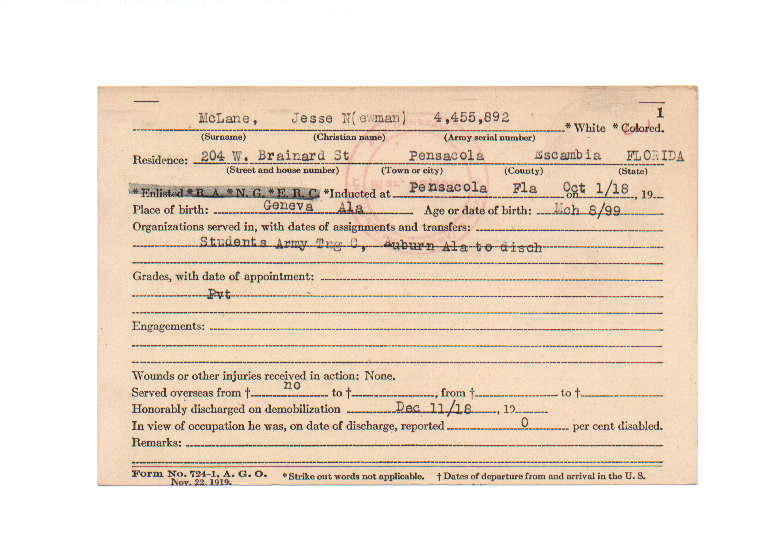 1
McLane, Jesse N(ewman) 4,455,892 * White * Colored.
(Surname) (Christian name) (Army serial number)
Residence: 204 W. Brainard St Pensacola Escambia FLORIDA
(Street and house number) (Town or city) (County) (State)
* Enlisted * R. A. * N. G. * E. R. C. *Inducted at Pensacola Fla on Oct 1/18, 19
Place of birth: Geneva Ala Age or date of birth: Mch 8/99
Organizations served in, with dates of assignments and transfers:
Students Army Trg C, Auburn Ala to disch
Grades, with date of appointment:
Pvt
Engagements:
Wounds or other injuries received in action: None.
Served overseas from † no to †, from † to †
Honorably discharged on demobilization Dec 11/18, 19
In view of occupation he was, on date of discharge, reported 0 per cent disabled.
Remarks:
Form No. 724-1, A. G. O. *Strike out words not applicable. † Dates of departure from and arrival in the U. S.
Nov. 22, 1919.